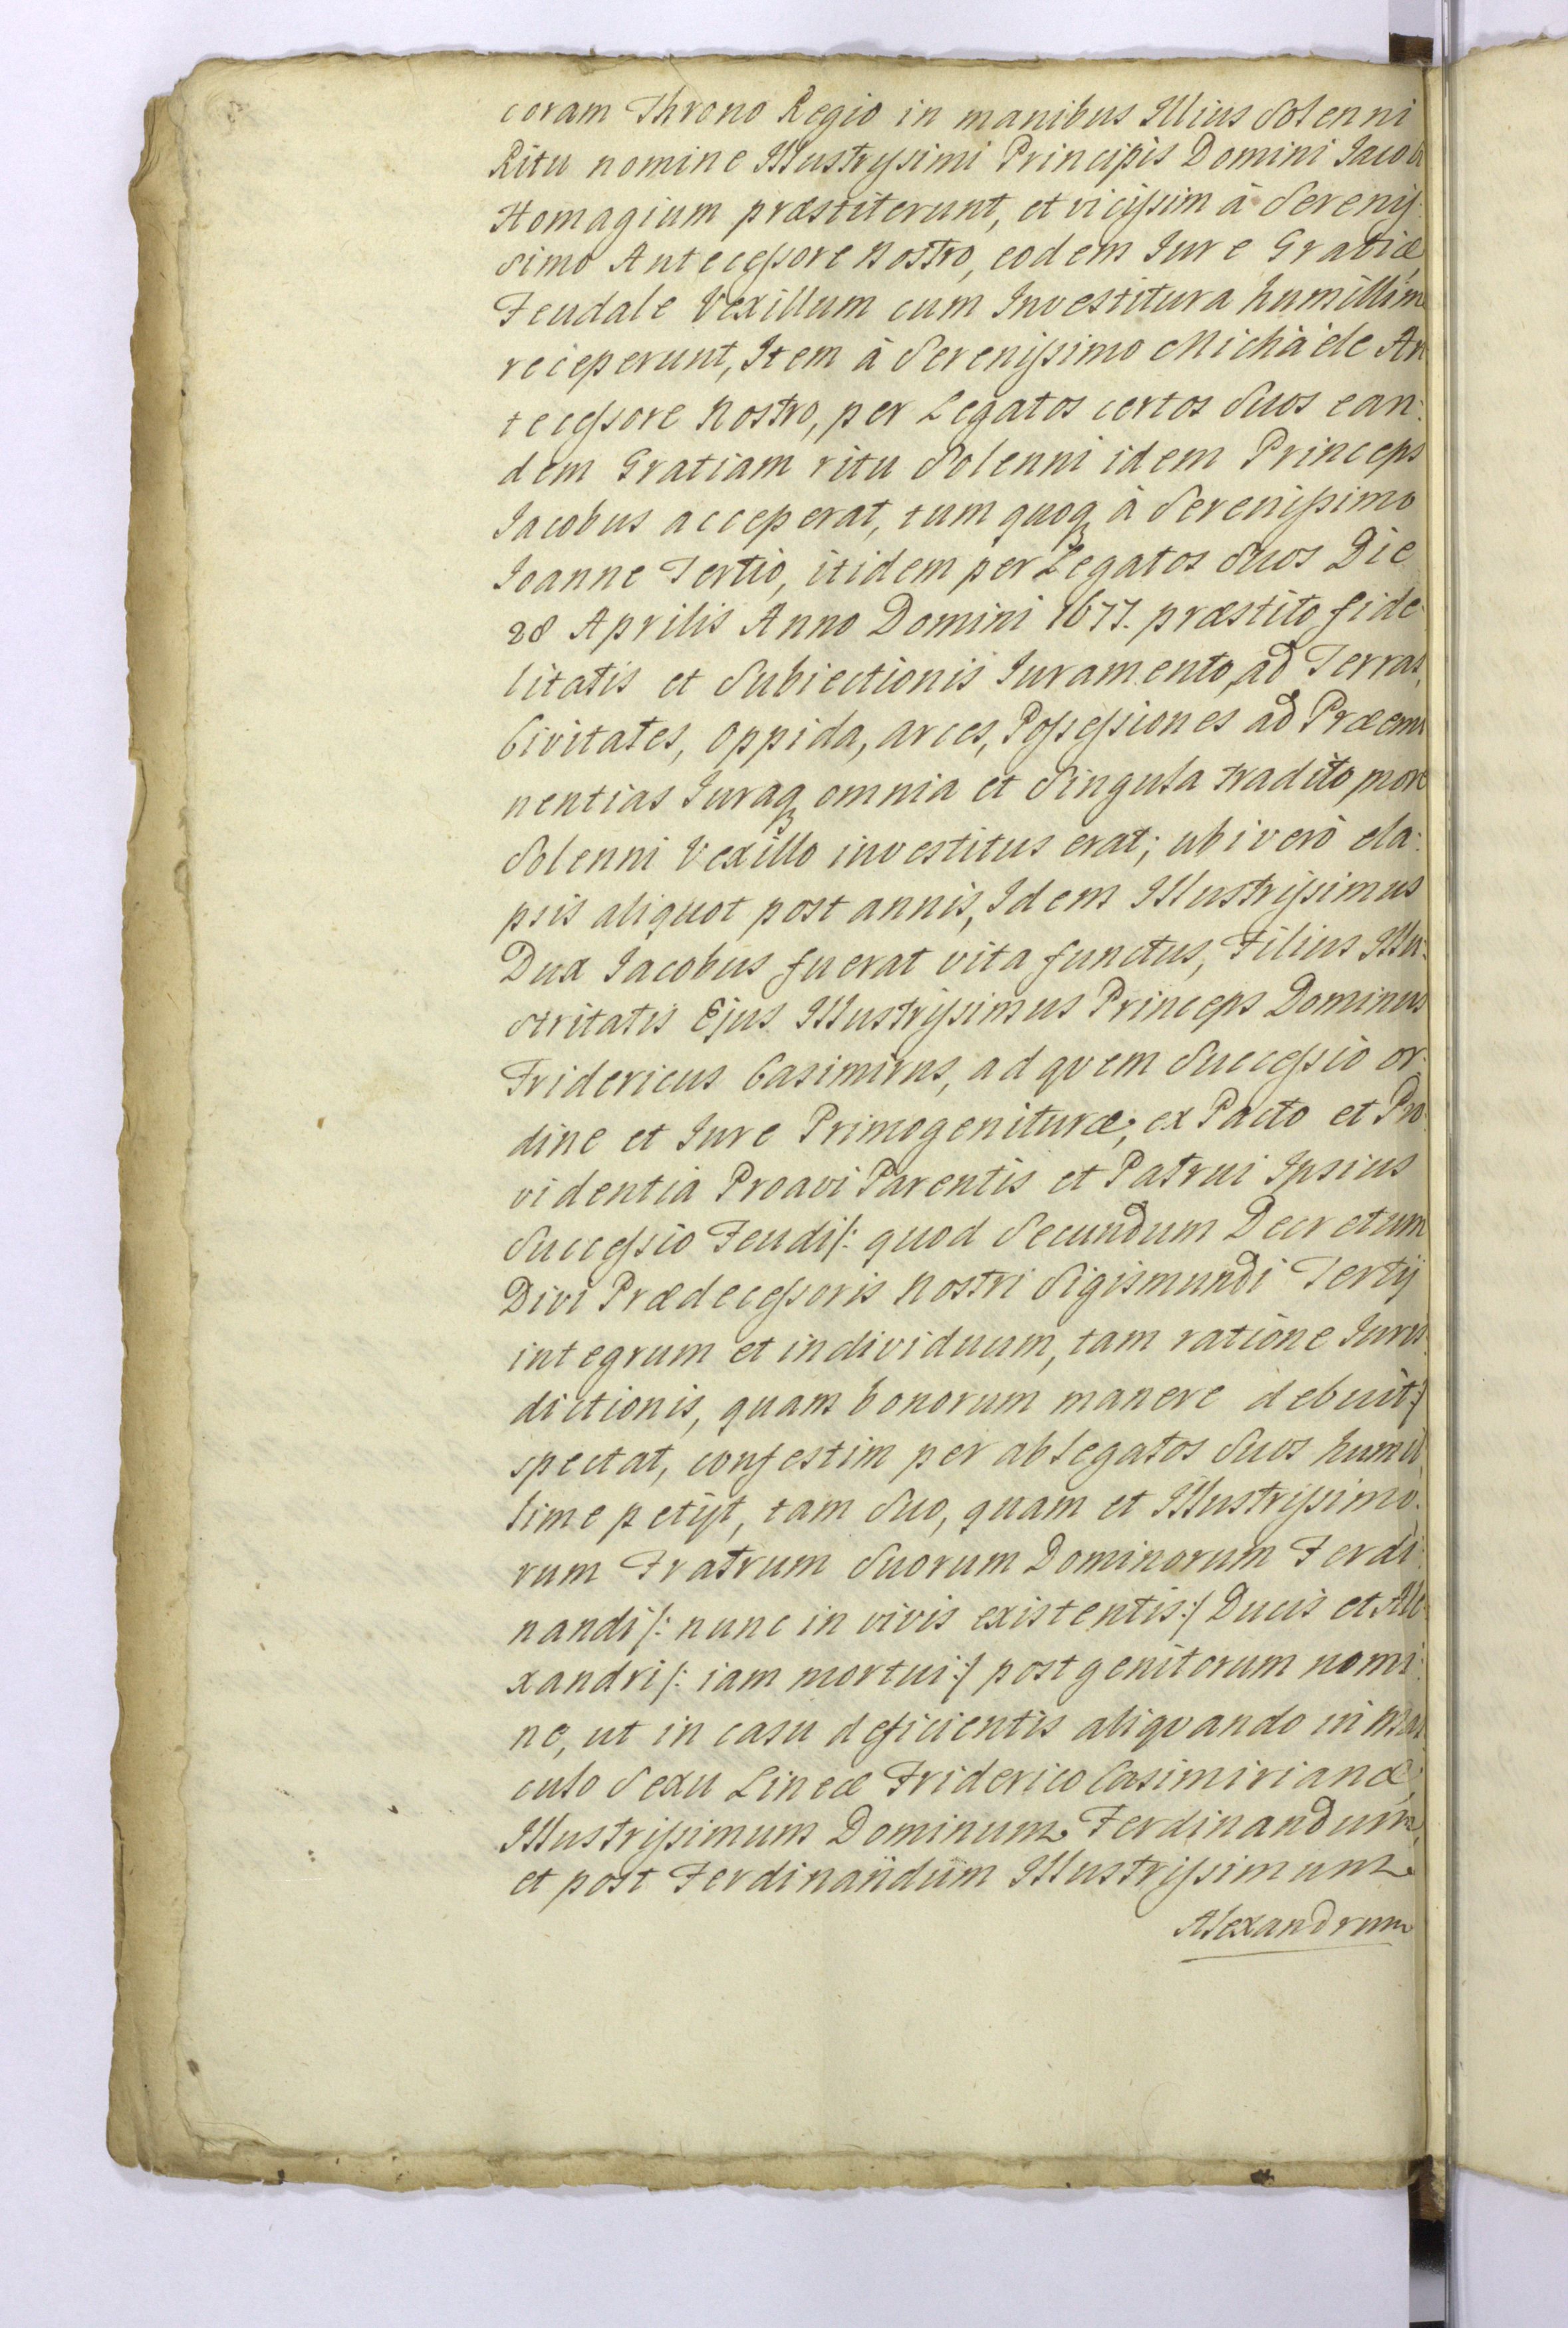 coram Throno Regio in manibus Illius Solenni
Ritu nomine Illustrissimi Principis Domini Iacobi
Homagium præstiterunt, et vicissim à Serenis:
simo Antecessore Nostro, eodem Iure Gratiæ,
Feudale Vexillum cum Investitura humillime
receperunt, Item à Serenissimo Michàéle An
tecessore Nostro, per Legatos certos Suos ean:
dem Gratiam ritu Solenni idem Princeps
Iacobus acceperat, tum quoq à Serenissimo
Ioanne Tertio, itidem per Legatos Suos Die
28 Aprilis Anno Domini 1677. præstito fide
litatis et Subiectionis Iuramento, ad Terras,
Civitates, Oppida, arces, Possessiones ad Præemi
nentias Iuraq omnia et Singula tradito, more
Solenni Vexillo investitus erat; ubi verò ela:
psis aliquot post annis, Idem Illustrissimus
Dux Iacobus fuerat vita functus, Filius Illu:
stritatis Ejus Illustrissimus Princeps Dominus
Fridericus Casimirus, ad quem Successio or:
dine et Iure Primogenituræ, ex Pacto et Pro
videntia Proavi Parentis et Patrui Ipsius
Successio Feudi /: quod Secundum Decretum
Divi Prædecessoris Nostri Sigismundi Tertij
integrum et individuum, tam ratione Iuris
dictionis, quam bonorum manere debuit :/
spectat, confestim per ablegatos Suos humil
lime petijt, tam Suo, quam et Illustrissimo:
rum Fratrum Suorum Dominorum Ferdi:
nandi /: nunc in vivis existentis :/ Ducis et Ale
xandri /: iam mortui :/ postgenitorum nomi:
ne, ut in casu deficientis aliquando in Mas
culo Sexu Lineæ Friderico Casimirianæ,
Illustrissimum Dominum Ferdinandum,
et post Ferdinandum Illustrissimum
Alexandrum